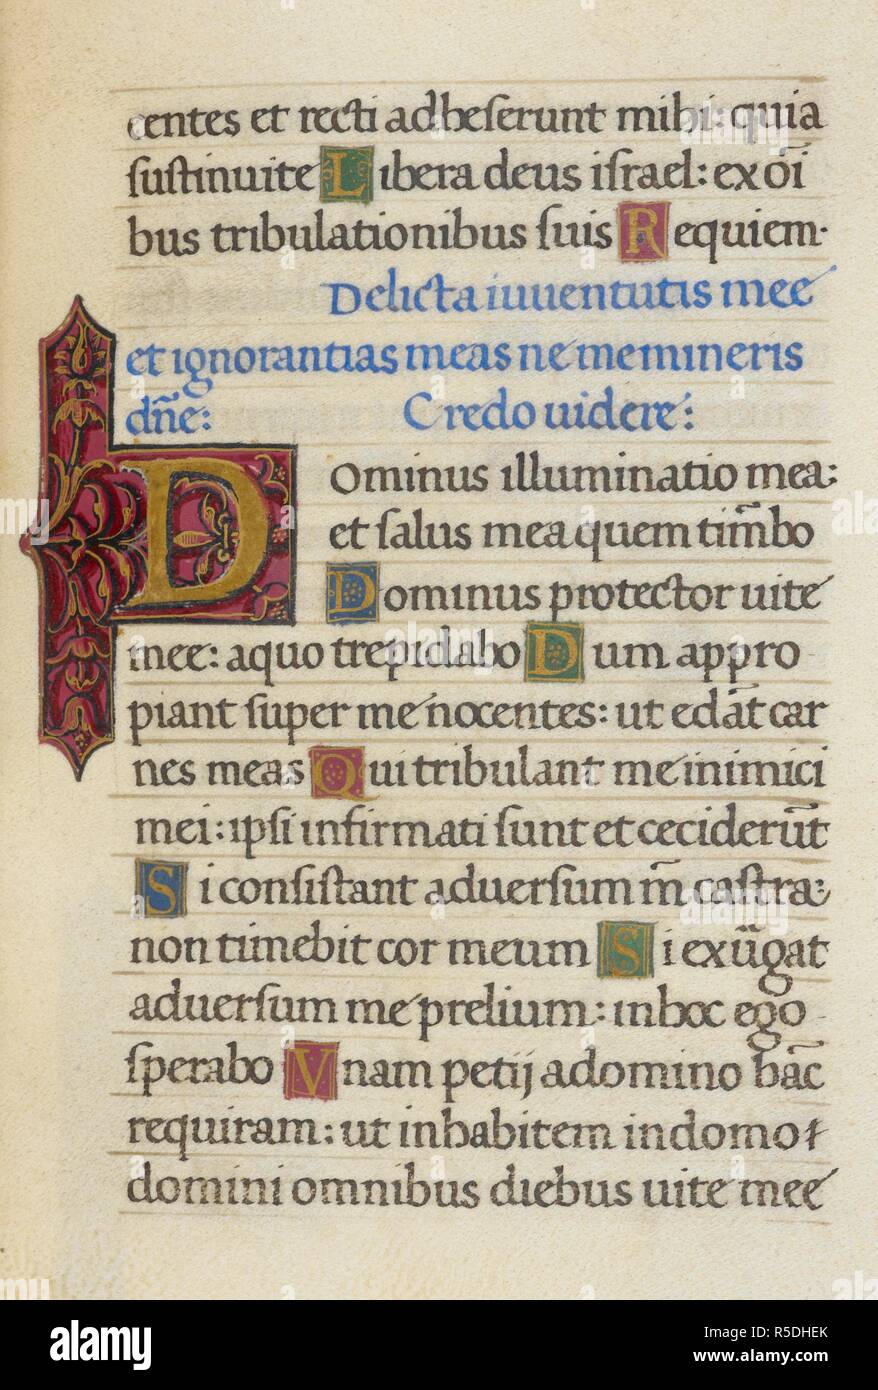 centes et recti adheserunt mihi: quia
sustinuite Libera deus israel: ex oı̄
bus tribulationibus suis Requiem.
Delicta iuuentutis mee
et ignorantias meas ne memineris
dn̄e: Credo uidere:
Dominus illuminatio mea:
et salus mea quem tim̄bo
Dominus protector uite
mee: aquo trepidabo Dum appro
piant super me nocentes: ut edāt car
nes meas Qui tribulant me inimici
mei: ipsi infirmati sunt et ceciderūt
Si consistant aduersum m̄ castra:
non timebit cor meum Si exūgat
aduersum me prelium: inhoc ego
sperabo Vnam petij adomino hāc
requiram: ut inhabitem indomo
domini omnibus diebus uite mee
alamy
Image ID: R5DHEK
www.alamy.com